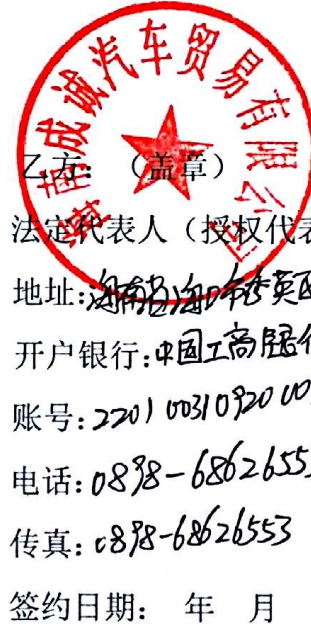 海南成诚汽车贸易有限公司
乙方：（盖章）
法定代表人（授权代表
地址:海南省海口市秀英区
开户银行:中国工商银行
账号:2201003109200
电话:0898-6862655
传真:0898-68626553
签约日期： 年 月